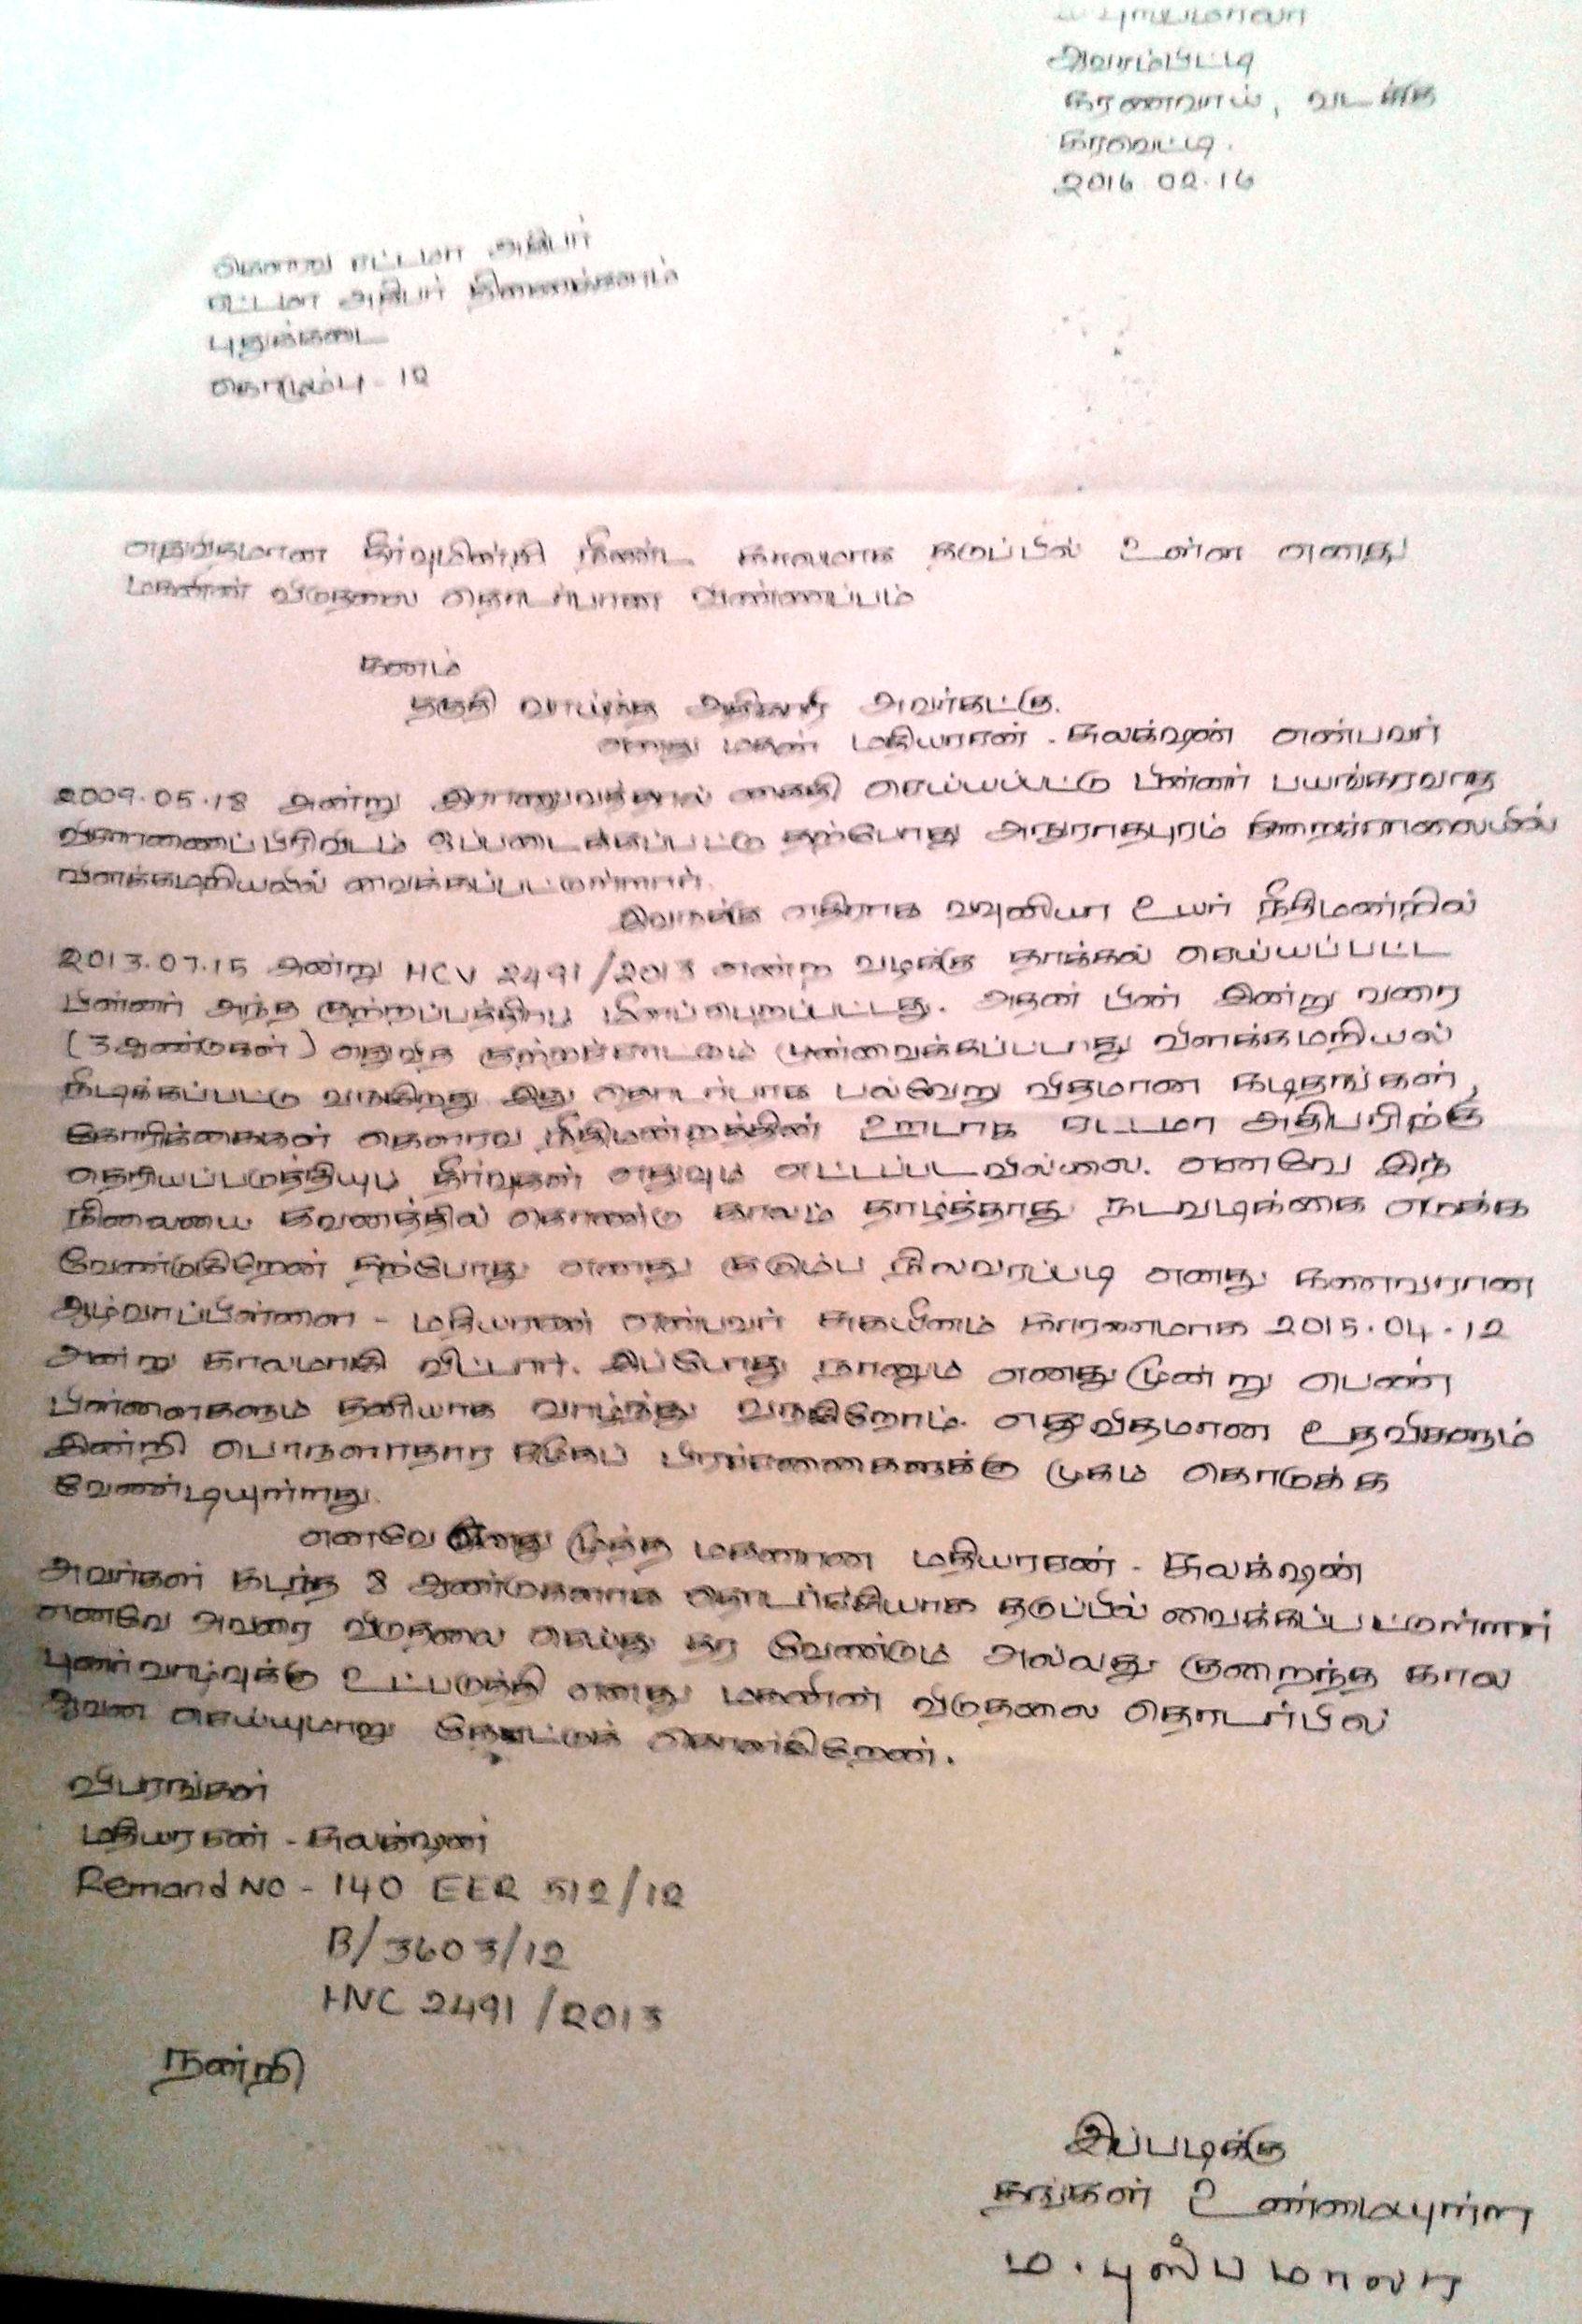 ம புஸ்பமாலா
அவரம்பிட்டி
கரணவாய், வடக்கு
கரவெட்டி.
2016 02.16
கௌரவ சட்டமா அதிபர்
சட்டமா அதிபர் திணைக்களம்
புதுக்கடை
கொழும்பு - 12
எதுவிதமான தீர்வுமின்றி நீண்ட காலமாக தடுப்பில் உள்ள எனது
மகனின் விடுதலை தொடர்பான விண்ணப்பம்
கனம்
தகுதி வாய்ந்த அதிகாரி அவர்கட்கு.
எனது மகன் மதியரசன் - சுலக்ஷன் என்பவர்
2009.05.18 அன்று இராணுவத்தால் கைது செய்யப்பட்டு பின்னர் பயங்கரவாத
விசாரணைப்பிரிவிடம் ஒப்படைக்கப்பட்டு தற்போது அநுராதபுரம் சிறைச்சாலையில்
விளக்கமறியலில் வைக்கப்பட்டுள்ளார்.
இவருக்கு எதிராக வவுனியா உயர் நீதிமன்றில்
2013.07.15 அன்று HCV 2491/2013 என்ற வழக்கு தாக்கல் செய்யப்பட்ட
பின்னர் அந்த குற்றப்பத்திரம் மீளப்பெறப்பட்டது. அதன் பின் இன்று வரை
(3ஆண்டுகள்) எதுவித குற்றச்சாட்டும் முன்வைக்கப்படாது விளக்கமறியல்
நீடிக்கப்பட்டு வருகிறது இது தொடர்பாக பல்வேறு விதமான கடிதங்கள்,
கோரிக்கைகள் கௌரவ நீதிமன்றத்தின் ஊடாக சட்டமா அதிபரிற்கு
தெரியப்படுத்தியும் தீர்வுகள் எதுவும் எட்டப்படவில்லை. எனவே இந்
நிலையை கவனத்தில் கொண்டு காலம் தாழ்த்தாது நடவடிக்கை எடுக்க
வேண்டுகிறேன் தற்போது எனது குடும்ப நிலவரப்படி எனது கணவரான
ஆழ்வாப்பிள்ளை - மதியரசன் என்பவர் சுகயீனம் காரணமாக 2015.04.12
அன்று காலமாகி விட்டார். இப்போது நானும் எனது மூன்று பெண்
பிள்ளைகளும் தனியாக வாழ்ந்து வருகிறோம். எதுவிதமான உதவிகளும்
இன்றி பொருளாதார சமூகப் பிரச்சனைகளுக்கு முகம் கொடுக்க
வேண்டியுள்ளது.
எனவே எனது மூத்த மகனான மதியரசன் - சுலக்ஷன்
அவர்கள் கடந்த 8 ஆண்டுகளாக தொடர்ச்சியாக தடுப்பில் வைக்கப்பட்டுள்ளார்
எனவே அவரை விடுதலை செய்து தர வேண்டும் அல்லது குறைந்த கால
புனர்வாழ்வுக்கு உட்படுத்தி எனது மகனின் விடுதலை தொடர்பில்
ஆவன செய்யுமாறு கேட்டுக் கொள்கிறேன்.
விபரங்கள்
மதியரசன் - சுலக்ஷன்
Remand No - 140 EER 512/12
B/3603/12
HNC 2491/2013
நன்றி
இப்படிக்கு
தங்கள் உண்மையுள்ள
ம. புஸ்பமாலா